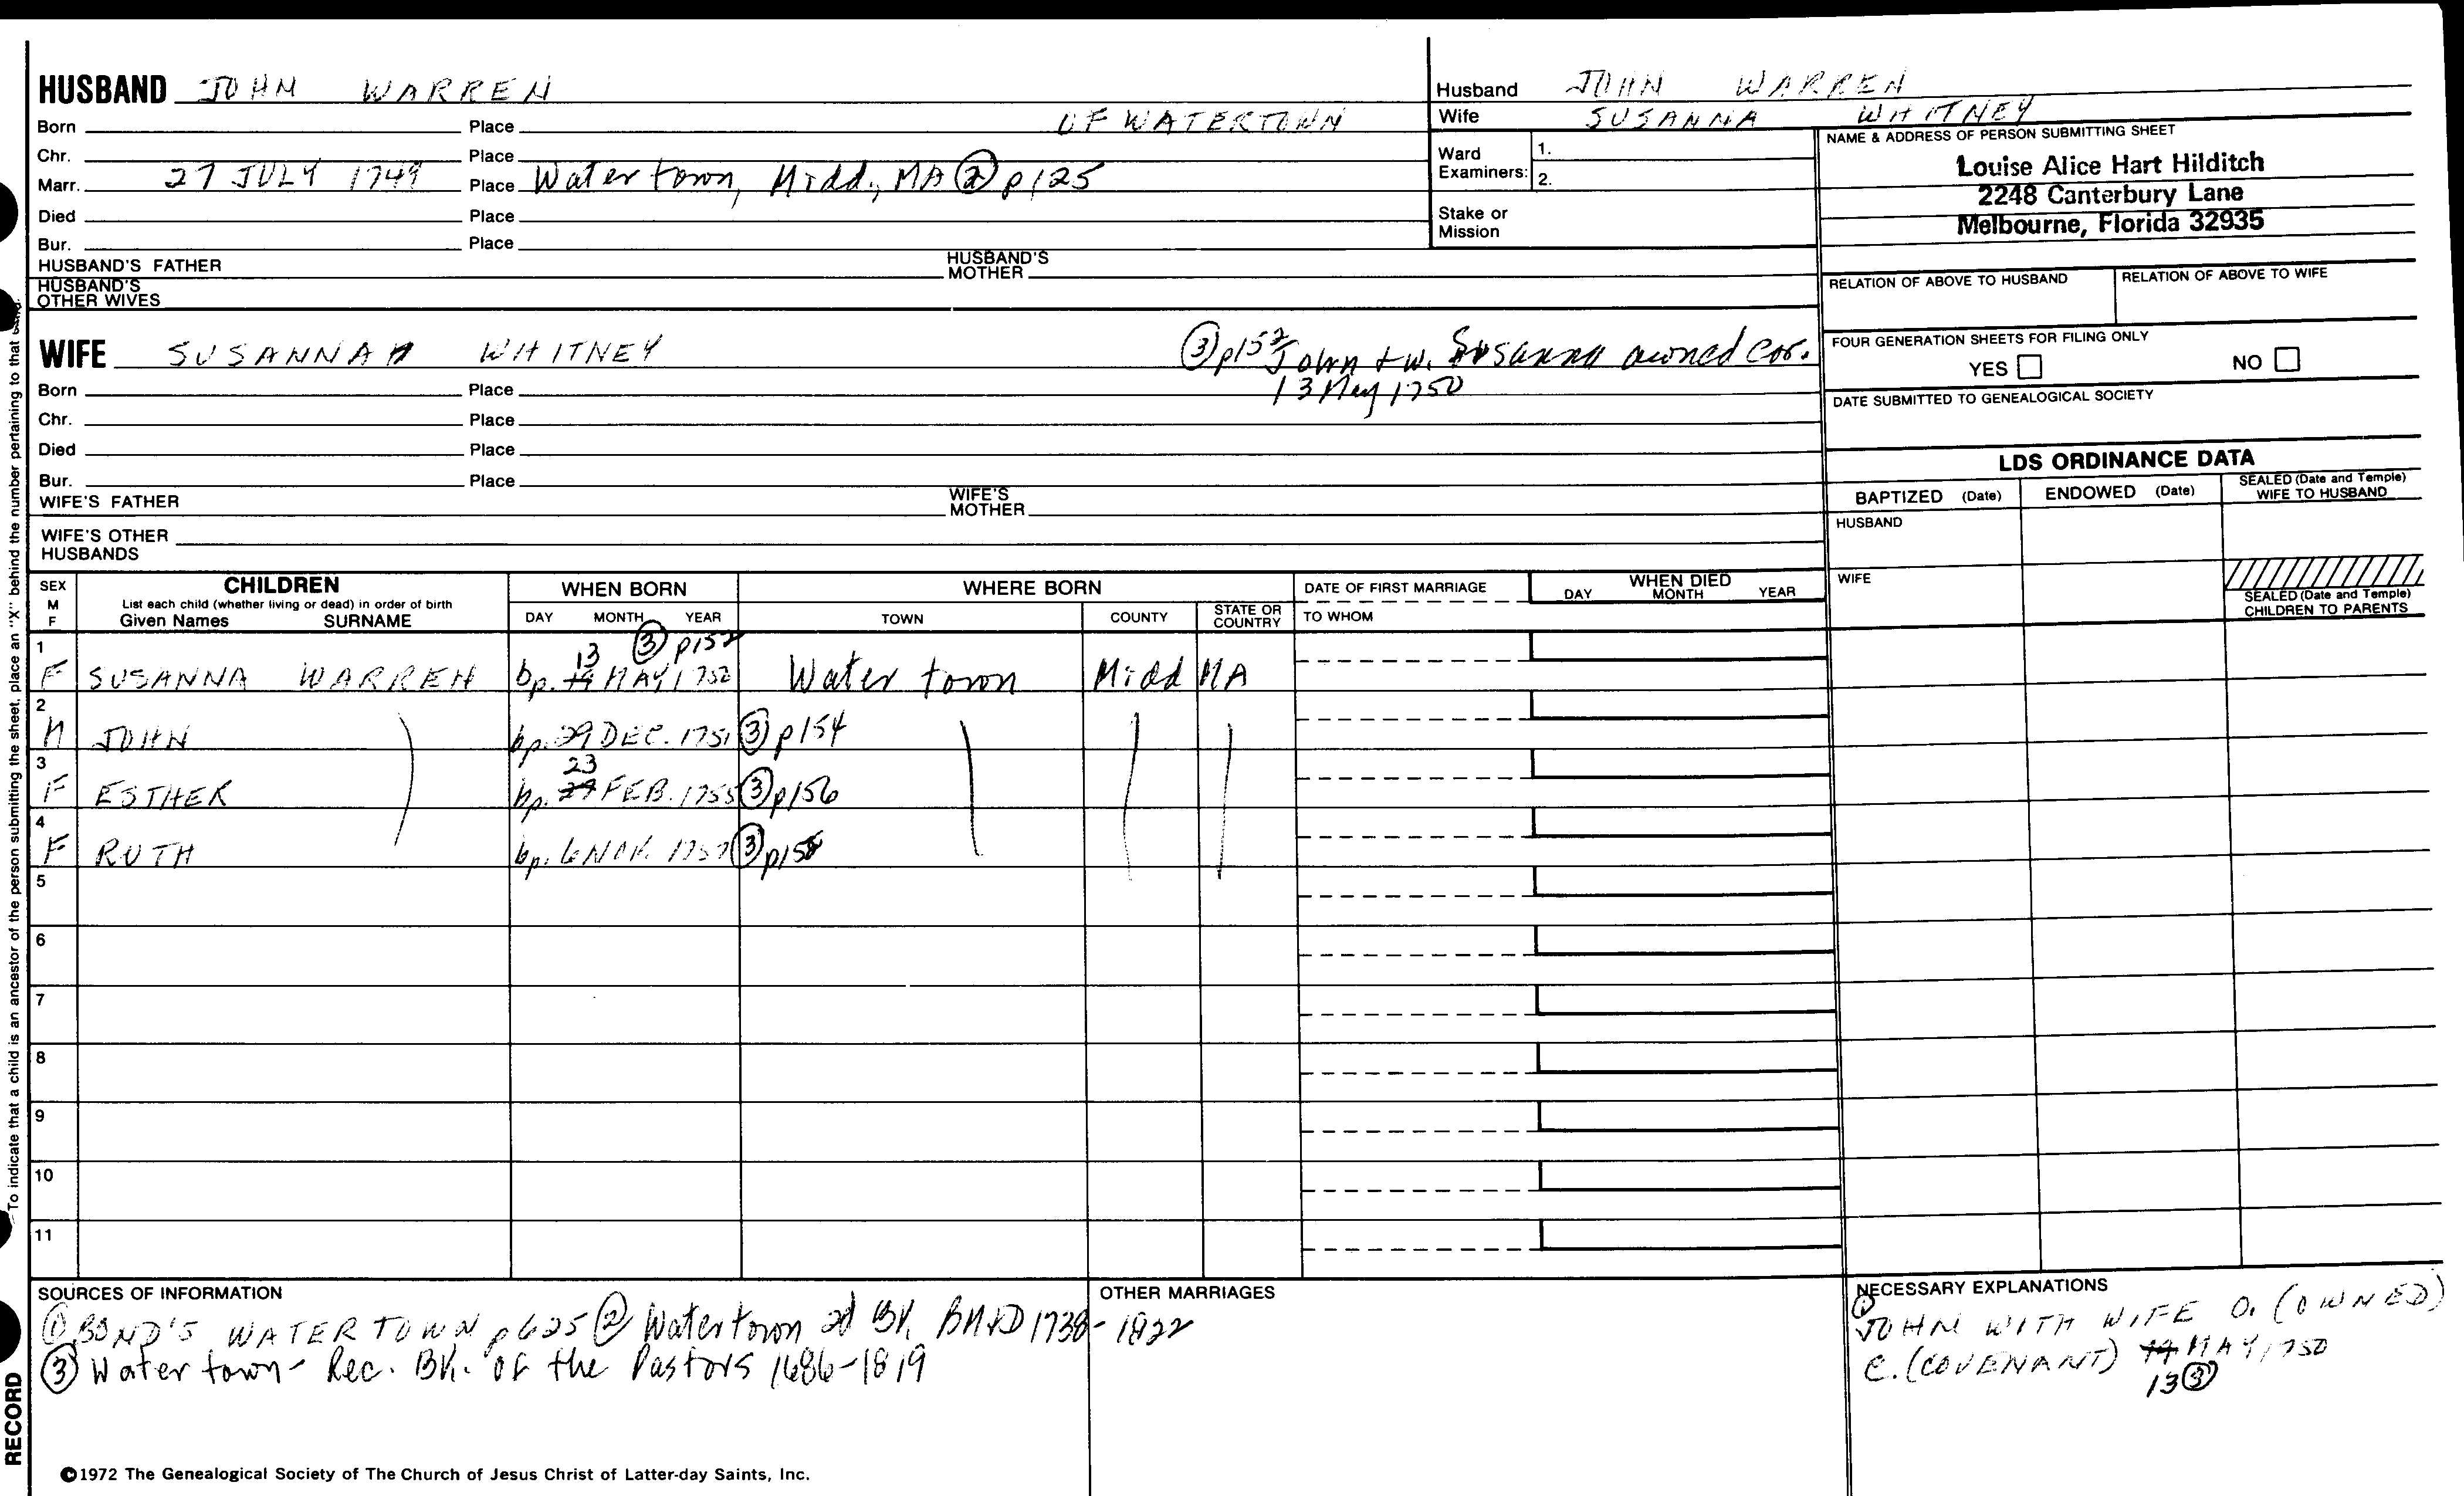 HUSBAND JOHN WARREN
Born Place OF WATERTOWN
Chr. Place
Marr. 27 JULY 1749 Place Watertown, Midd., MA ② p125
Died Place
Bur. Place
HUSBAND'S FATHER HUSBAND'S MOTHER
HUSBAND'S OTHER WIVES
Husband JOHN WARREN
Wife SUSANNA WHITNEY
Ward Examiners: 1.
2.
Stake or Mission
NAME & ADDRESS OF PERSON SUBMITTING SHEET
Louise Alice Hart Hilditch
2248 Canterbury Lane
Melbourne, Florida 32935
RELATION OF ABOVE TO HUSBAND RELATION OF ABOVE TO WIFE
FOUR GENERATION SHEETS FOR FILING ONLY
YES NO
DATE SUBMITTED TO GENEALOGICAL SOCIETY
WIFE SUSANNAH WHITNEY ③ p152 John + w. Susanna owned cov.
13 May 1750
Born Place
Chr. Place
Died Place
Bur. Place
WIFE'S FATHER WIFE'S MOTHER
WIFE'S OTHER HUSBANDS
LDS ORDINANCE DATA
BAPTIZED (Date) ENDOWED (Date) SEALED (Date and Temple) WIFE TO HUSBAND
HUSBAND
WIFE
SEALED (Date and Temple) CHILDREN TO PARENTS
SEX M F
CHILDREN
List each child (whether living or dead) in order of birth
Given Names SURNAME
WHEN BORN
DAY MONTH YEAR
WHERE BORN
TOWN COUNTY STATE OR COUNTRY
DATE OF FIRST MARRIAGE
TO WHOM
WHEN DIED
DAY MONTH YEAR
13 ③ p152
1 F SUSANNA WARREN bp. 14 MAY 1750 Watertown Midd MA
2 M JOHN bp. 29 DEC. 1751 ③ p154
23
3 F ESTHER bp. 29 FEB. 1755 ③ p156
4 F RUTH bp. 6 MAR. 1757 ③ p158
5
6
7
8
9
10
11
SOURCES OF INFORMATION
① BOND'S WATERTOWN p625 ② Watertown 2d Bk. BM+D 1738-1822
③ Watertown- Rec. Bk. of the Pastors 1686-1819
OTHER MARRIAGES
NECESSARY EXPLANATIONS
① JOHN WITH WIFE O. (OWNED)
C. (COVENANT) 14 MAY 1750
13 ③
©1972 The Genealogical Society of The Church of Jesus Christ of Latter-day Saints, Inc.
To indicate that a child is an ancestor of the person submitting the sheet, place an "X" behind the number pertaining to that
RECORD